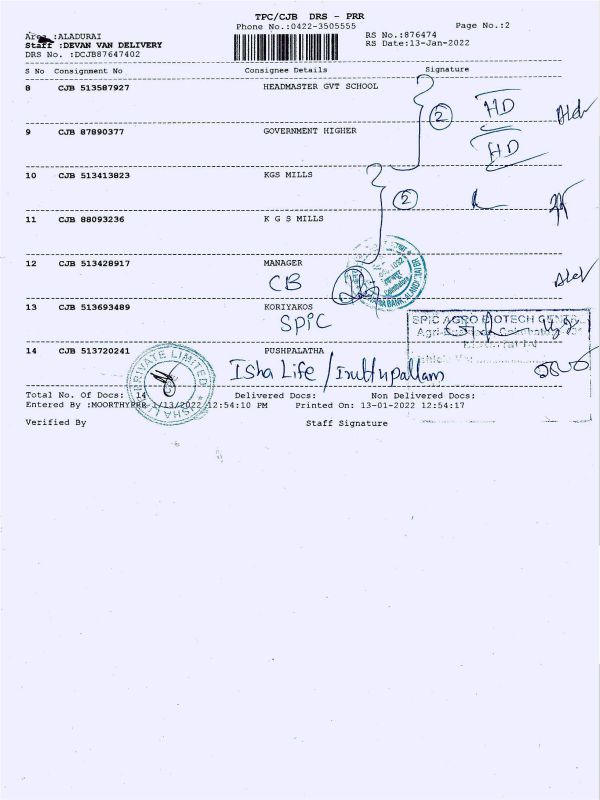 TPC/CJB DRS - PRR
Phone No.:0422-3505555
Page No.:2
Area :ALADURAI
RS No.:876474
Staff :DEVAN VAN DELIVERY
RS Date:13-Jan-2022
DRS No. :DCJB87647402
S No Consignment No Consignee Details Signature
8 CJB 513587927 HEADMASTER GVT SCHOOL
2 HD
9 CJB 87890377 GOVERNMENT HIGHER
HD
10 CJB 513413823 KGS MILLS
2
11 CJB 88093236 K G S MILLS
12 CJB 513428917 MANAGER
CB
13 CJB 513693489 KORIYAKOS
SPIC
SPIC AGRO BIOTECH
14 CJB 513720241 PUSHPALATHA
Isha Life / Iruttupallam
PRIVATE LIMITED
Total No. Of Docs: 14 Delivered Docs: Non Delivered Docs:
Entered By :MOORTHYPRR 1/13/2022 12:54:10 PM Printed On: 13-01-2022 12:54:17
Verified By Staff Signature